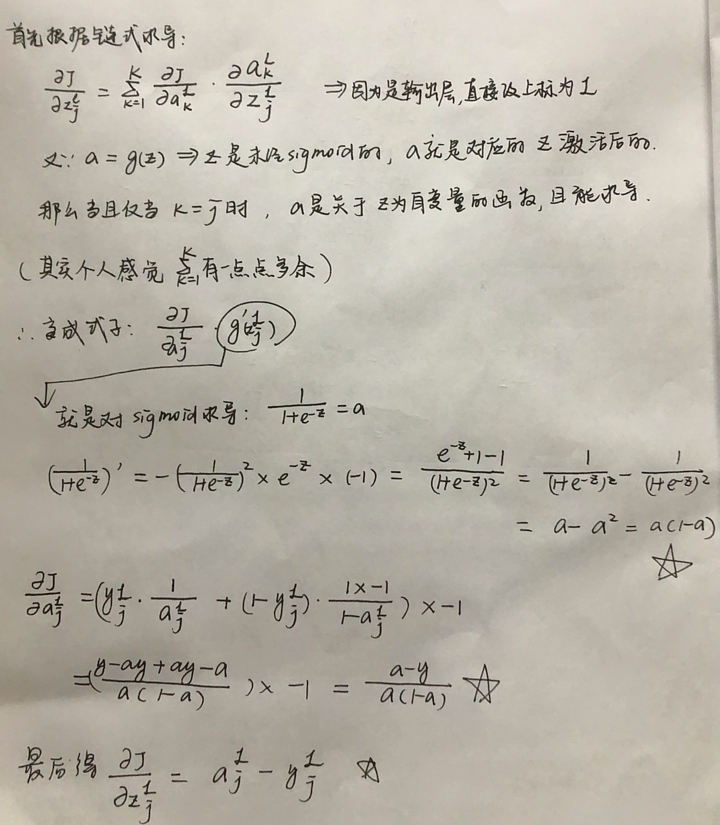 首先根据链式求导:
∂J/∂z_j^L = Σ_{k=1}^{K} ∂J/∂a_k^L · ∂a_k^L/∂z_j^L ⇒因为是输出层,直接改上标为L
又∵ a = g(z) ⇒ z 是未经sigmoid的, a就是对应的 z 激活后的.
那么当且仅当 k=j 时, a是关于z为自变量的函数,且能求导.
(其实个人感觉 Σ_{k=1}^{K} 有一点点多余)
∴ 变成式子: ∂J/∂a_j^L · g'(z_j^L)
就是对 sigmoid求导: 1/(1+e^{-z}) = a
(1/(1+e^{-z}))' = -(1/(1+e^{-z}))^2 × e^{-z} × (-1) = (e^{-z}+1-1)/(1+e^{-z})^2 = 1/(1+e^{-z}) - 1/(1+e^{-z})^2
= a - a^2 = a(1-a)
∂J/∂a_j^L = (y_j^L · 1/a_j^L + (1-y_j^L) · (1×-1)/(1-a_j^L)) × -1
= ((y-ay+ay-a)/(a(1-a))) × -1 = (a-y)/(a(1-a))
最后得 ∂J/∂z_j^L = a_j^L - y_j^L